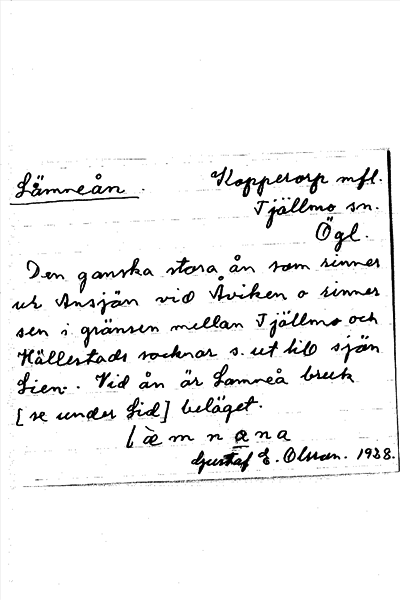 Lämneån.
Koppetorp mfl.
Tjällmo sn.
Ögl.
Den ganska stora ån som rinner
ur Ånsjön vid Åviken o rinner
sen i gränsen mellan Tjällmo och
Hällestads socknar s. ut till sjön
Lien. Vid ån är Lämneå bruk
[se under Lid] beläget.
læ̀mnana
Gustaf E. Olsson. 1938.